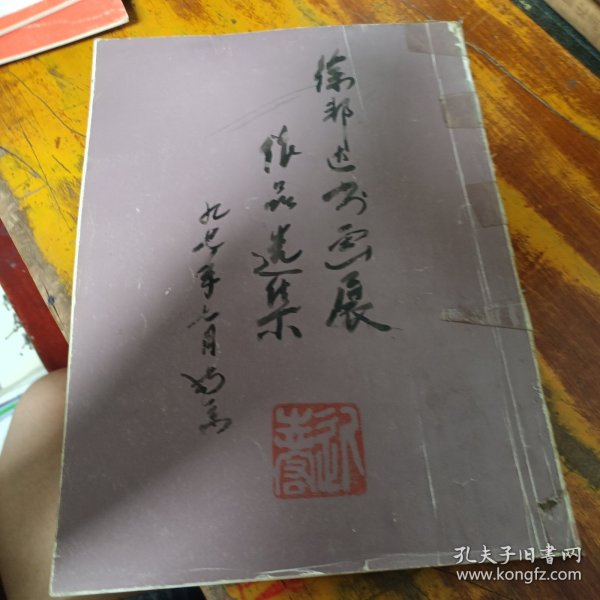 徐邦达书画展
作品选集
九七年七月
孔夫子旧书网
www.kongfz.com